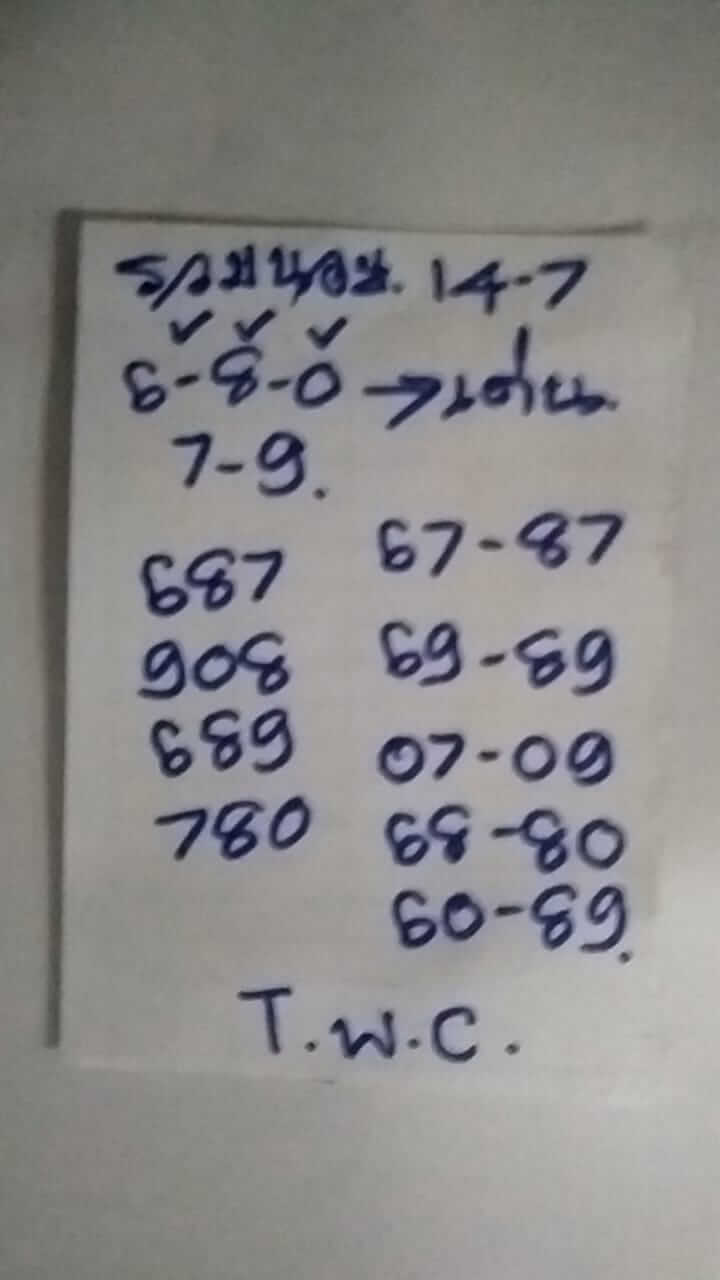 รวมนอย. 14-7
6-8-0 → เด่น.
7-9.
687
908
689
780
67-87
69-89
07-09
68-80
60-89.
T.พ.C.